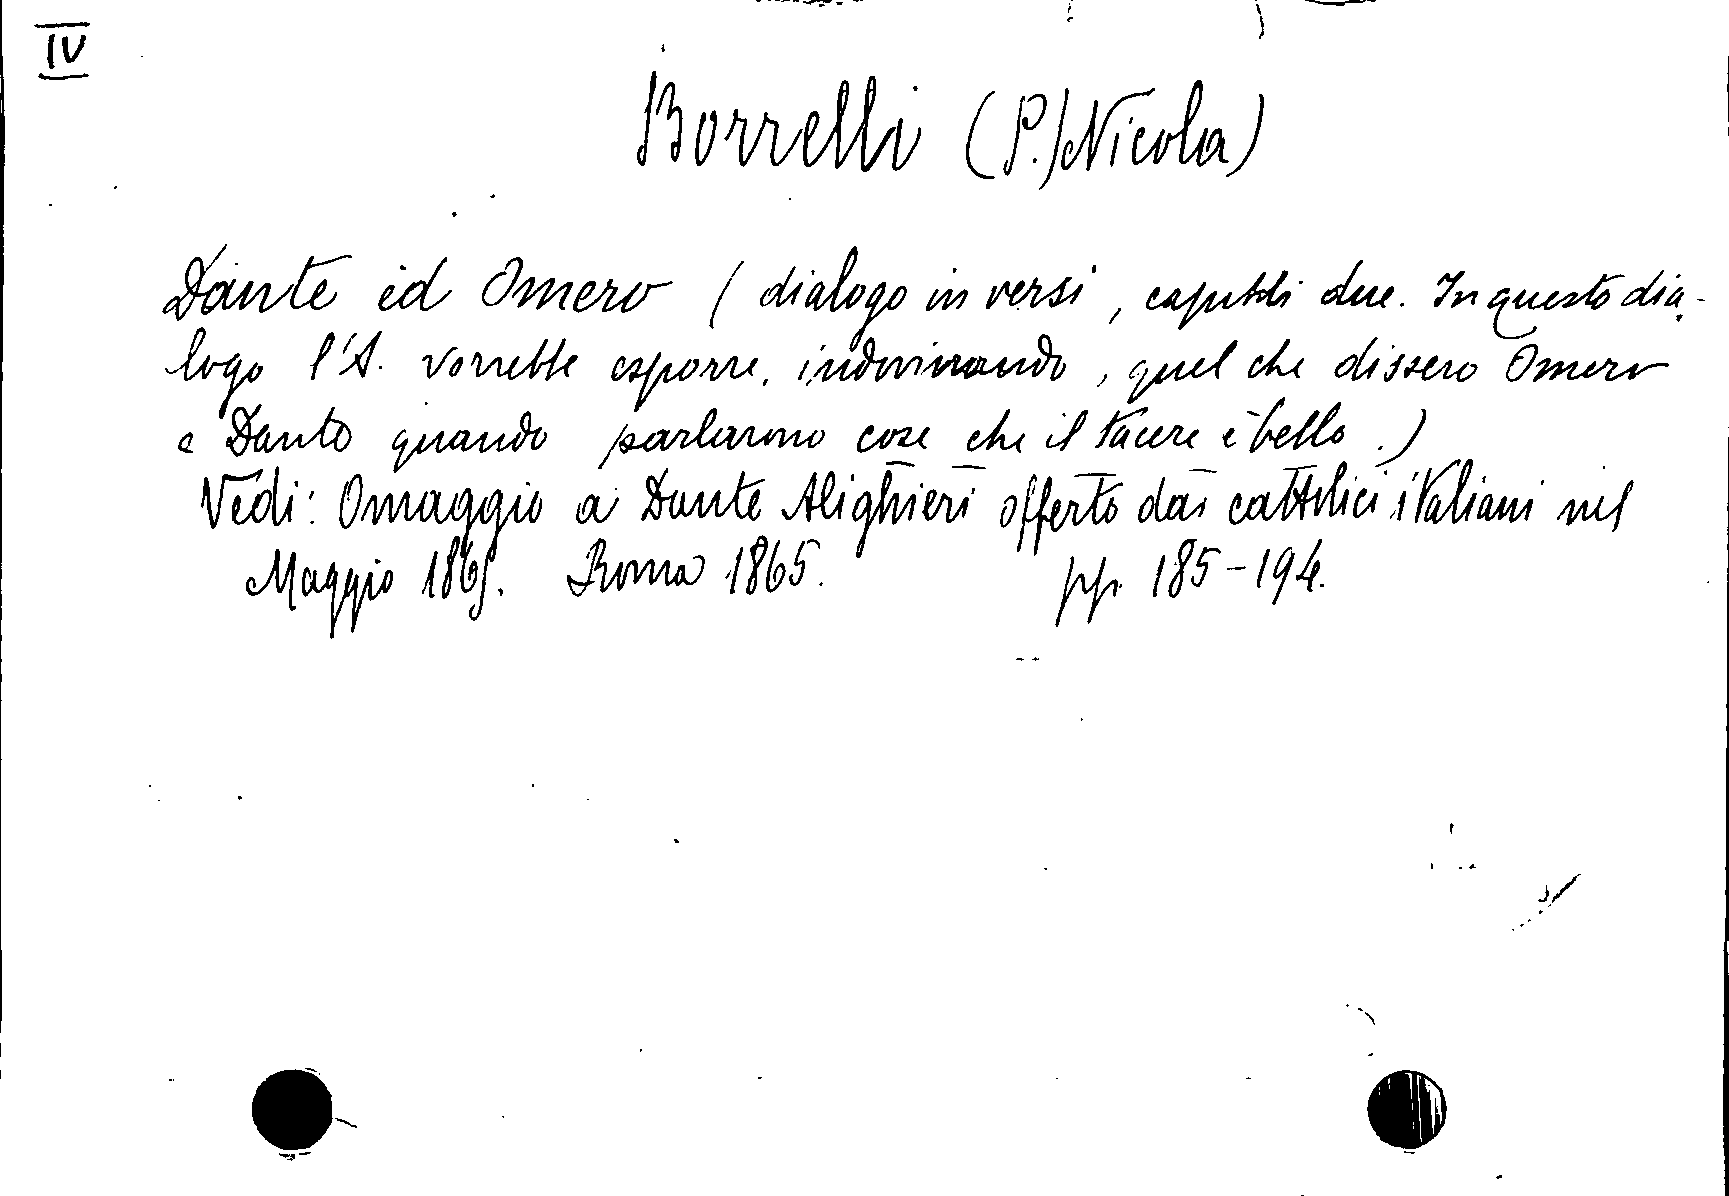 IV
Borrelli (P. Nicola)
Dante ed Omero (dialogo in versi, capitoli due. In questo dia-
logo l'A. vorrebbe esporre, indovinando, quel che dissero Omero
e Dante quando parlarono cose che il tacere è bello.)
Vedi: Omaggio a Dante Alighieri offerto dai cattolici italiani nel
Maggio 1865. Roma 1865. pp. 185-194.